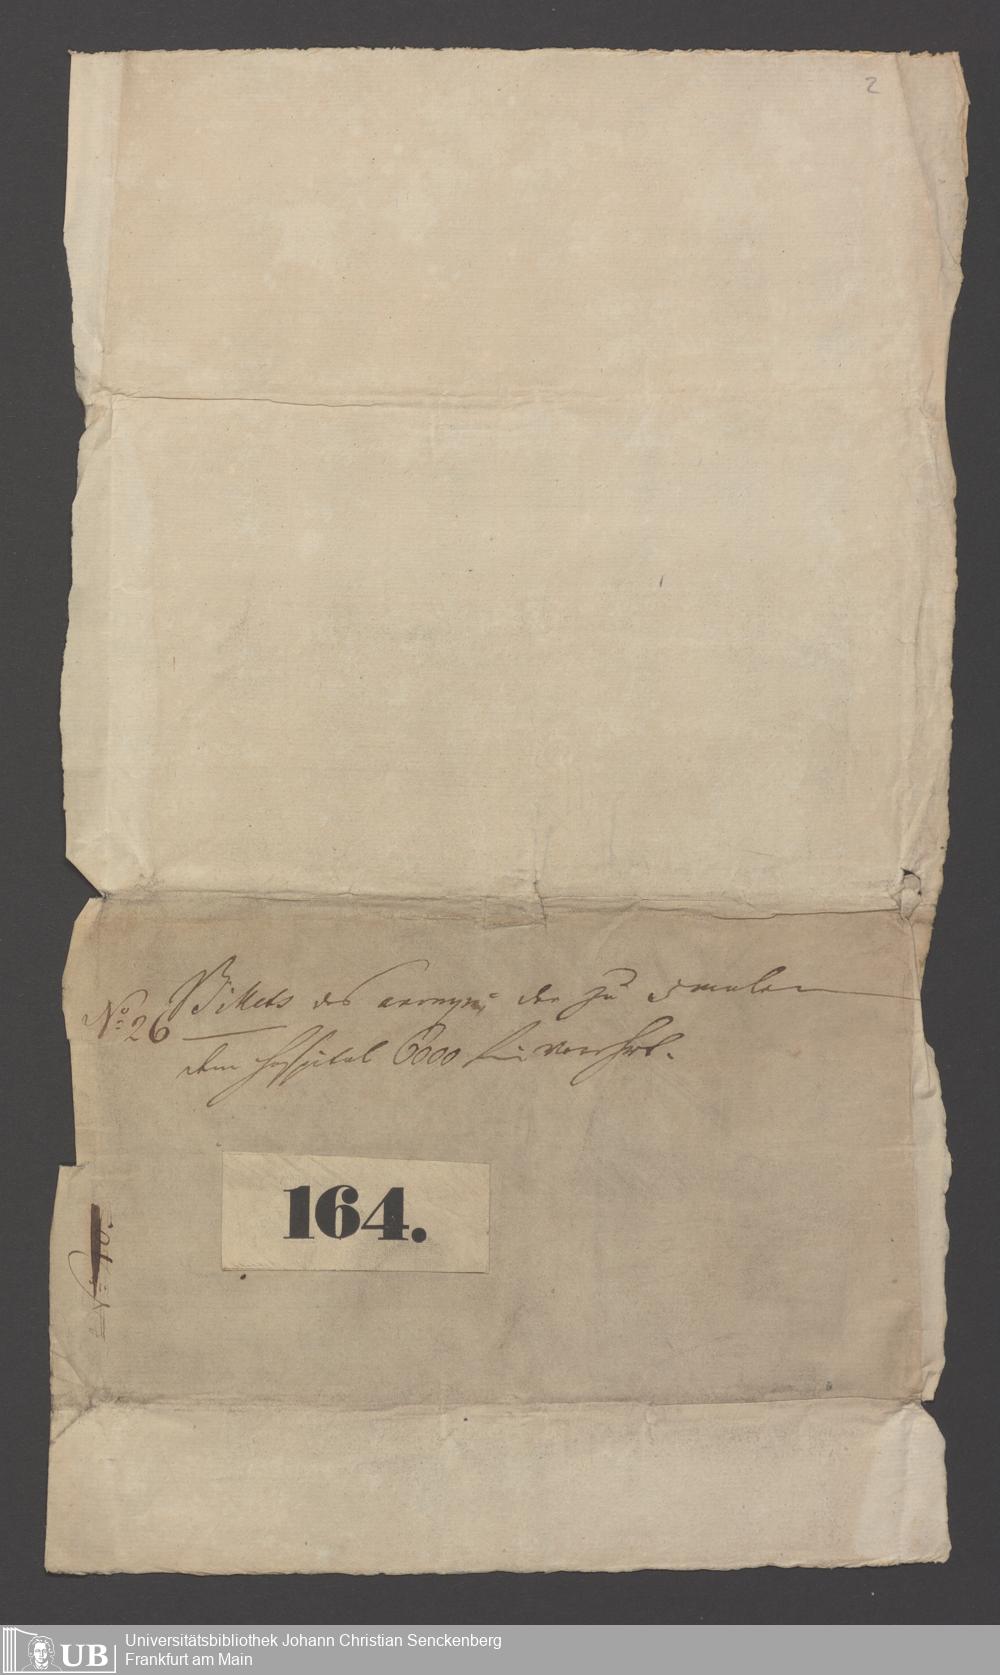 2
Billets des anonymi der zu 3 malen
No. 26
dem Hospital 6000 verehrt.
164.
No. 10.
UB
Universitätsbibliothek Johann Christian Senckenberg
Frankfurt am Main